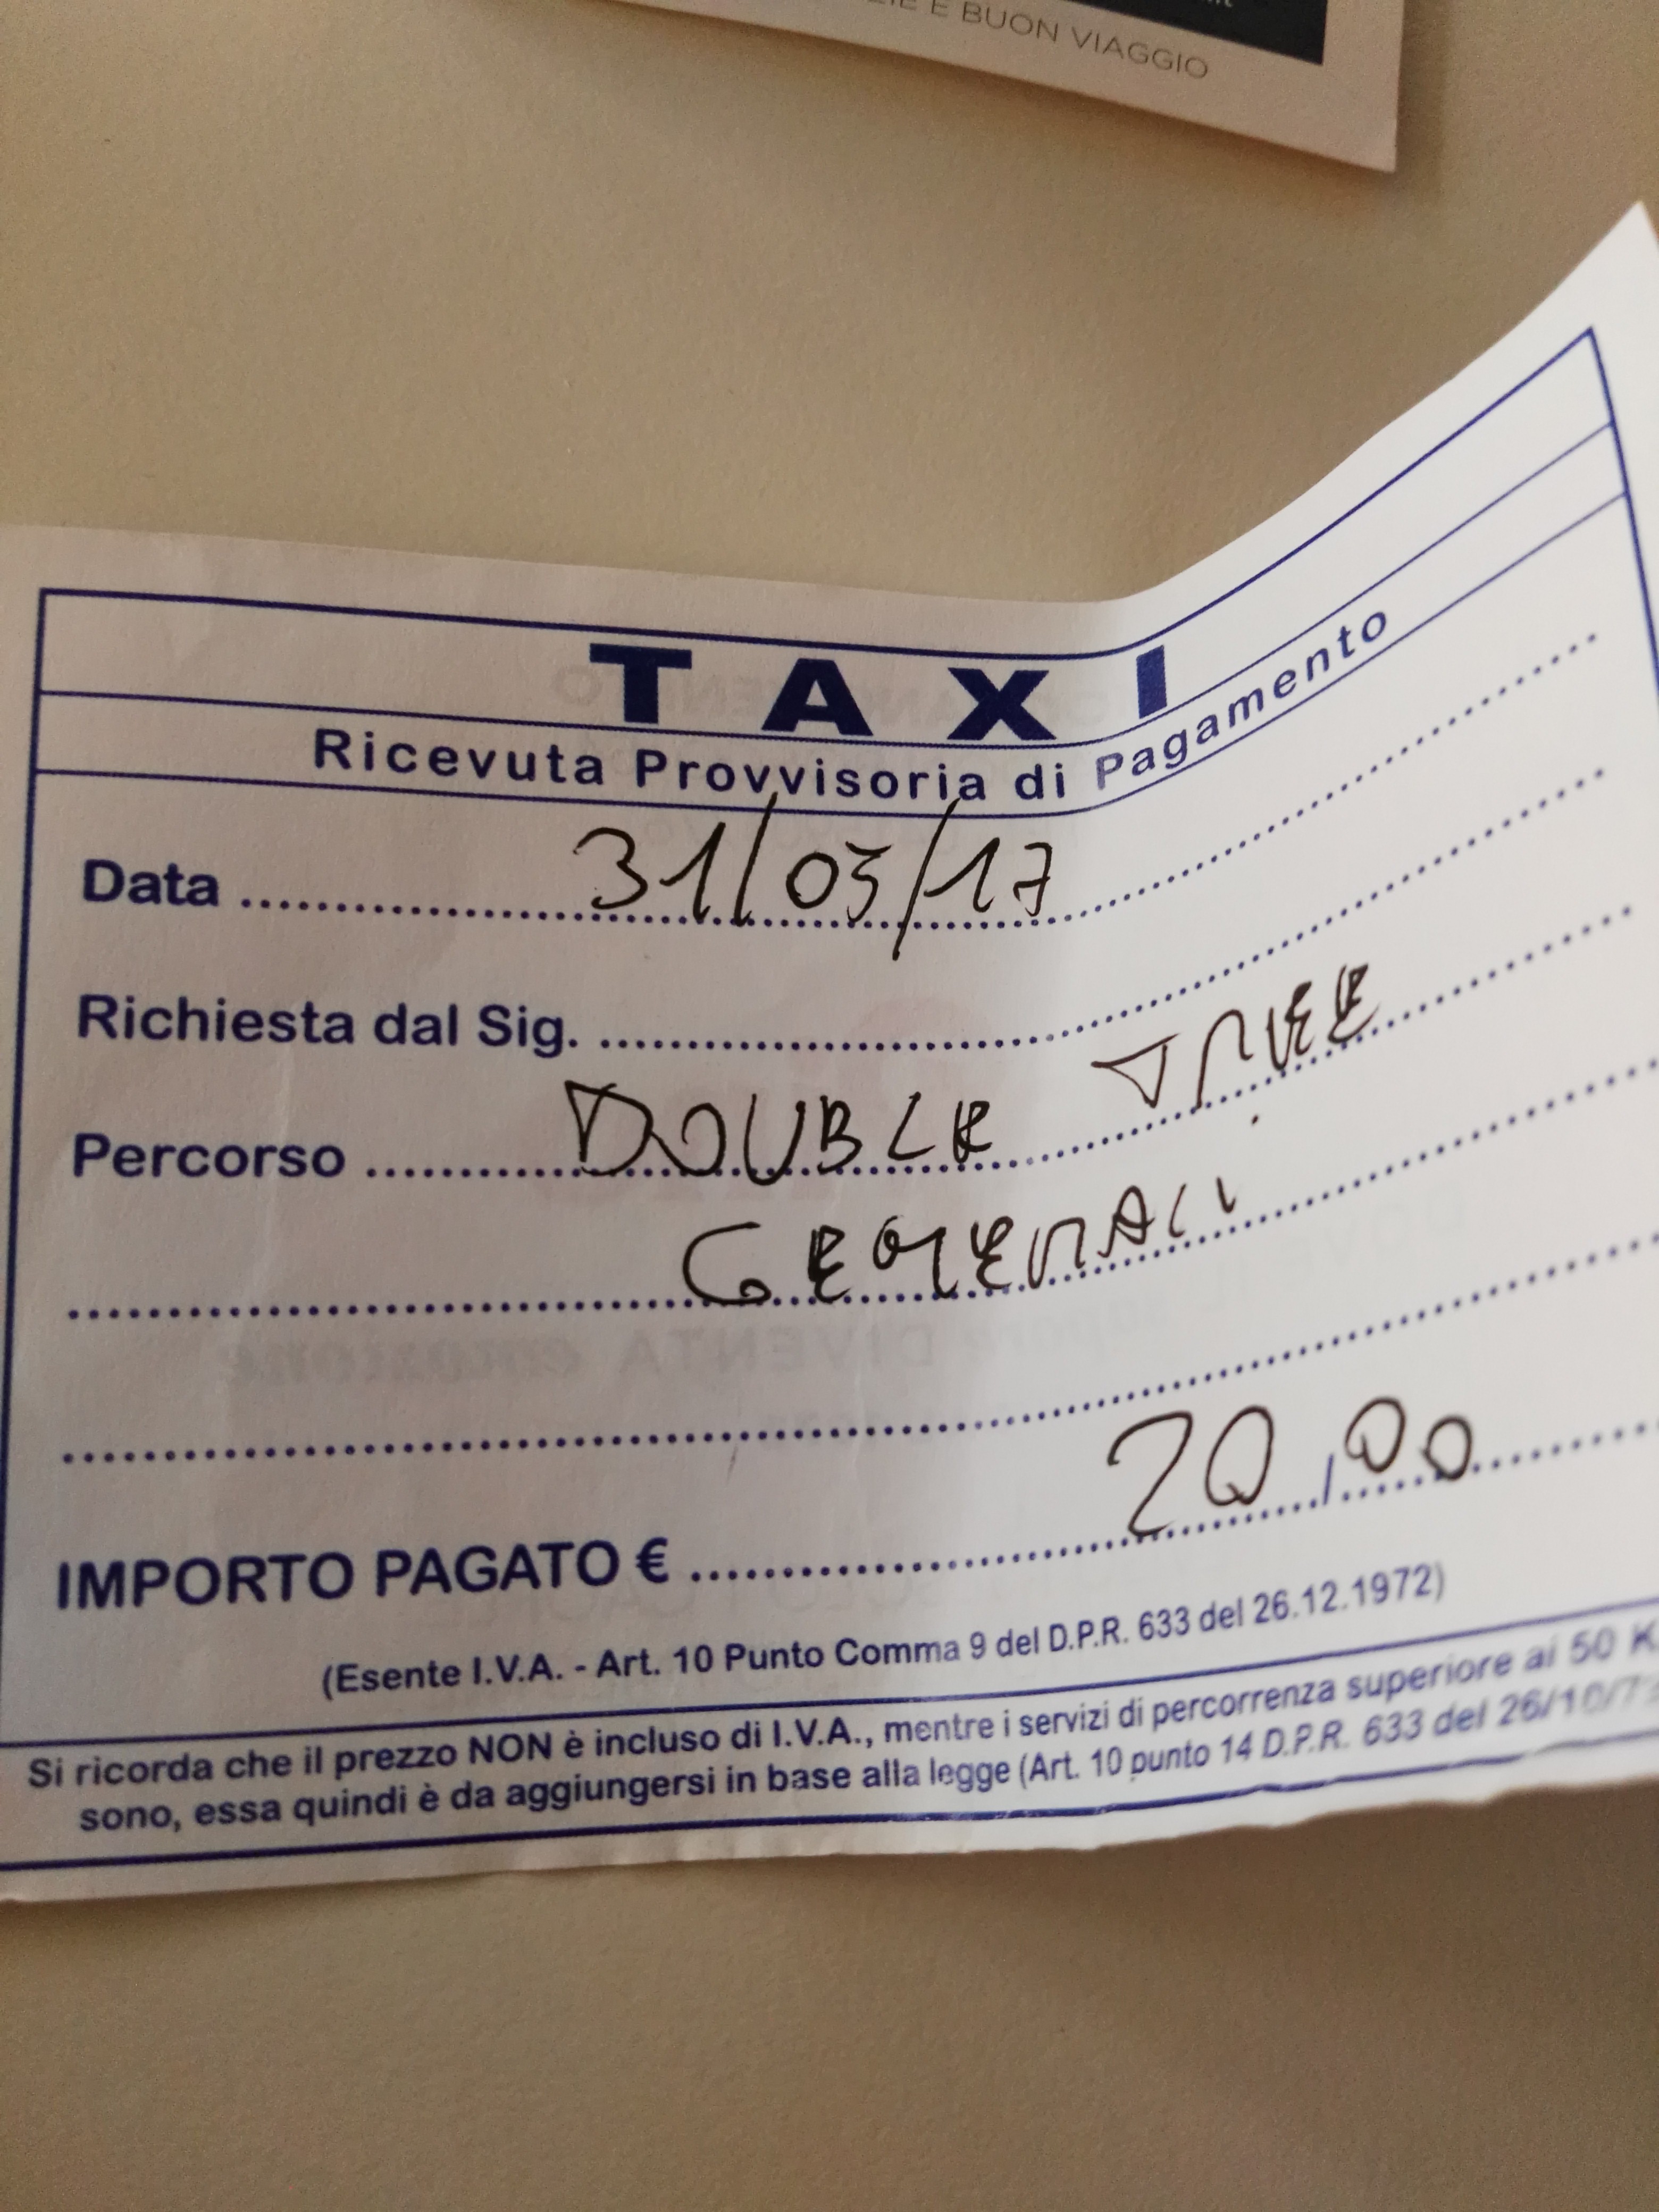 E BUON VIAGGIO
TAXI
Ricevuta Provvisoria di Pagamento
Data 31/05/17
Richiesta dal Sig.
Percorso DOUBLE TREE
GENERALI
IMPORTO PAGATO € 20,00
(Esente I.V.A. - Art. 10 Punto Comma 9 del D.P.R. 633 del 26.12.1972)
Si ricorda che il prezzo NON è incluso di I.V.A., mentre i servizi di percorrenza superiore ai 50 K
sono, essa quindi è da aggiungersi in base alla legge (Art. 10 punto 14 D.P.R. 633 del 26/10/7